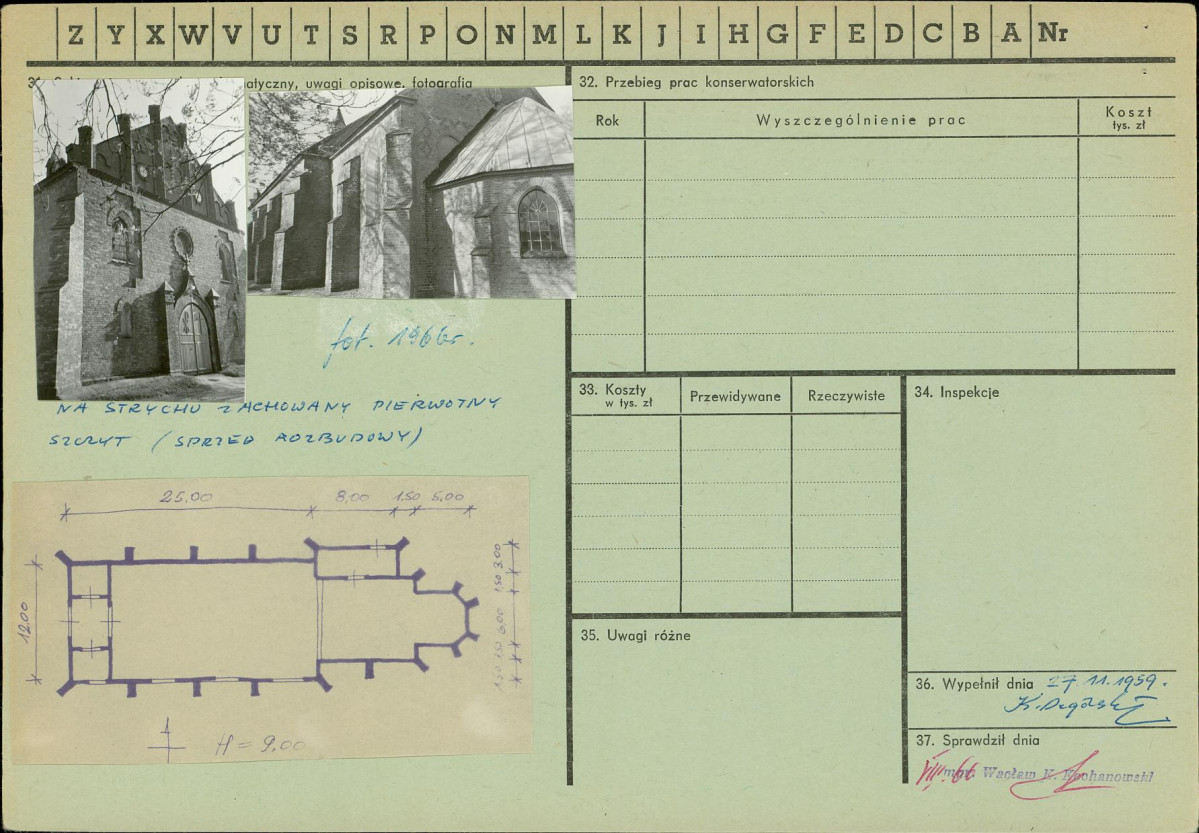 Z Y X W V U T S R P O N M L K J I H G F E D C B A Nr
atyczny, uwagi opisowe, fotografia
fot. 1966r.
NA STRYCHU ZACHOWANY PIERWOTNY
SZCZYT (SPRZED ROZBUDOWY)
25,00 8,00 1.50 5,00
12.00
1.50 1.50 6,00 1.50 3.00
H = 9,00
32. Przebieg prac konserwatorskich
Rok Wyszczególnienie prac Koszt
tys. zł
33. Koszty
w tys. zł
Przewidywane Rzeczywiste
34. Inspekcje
35. Uwagi różne
36. Wypełnił dnia 27.11.1959.
37. Sprawdził dnia
VIII 66 mgr. Wacław K. Kochanowski